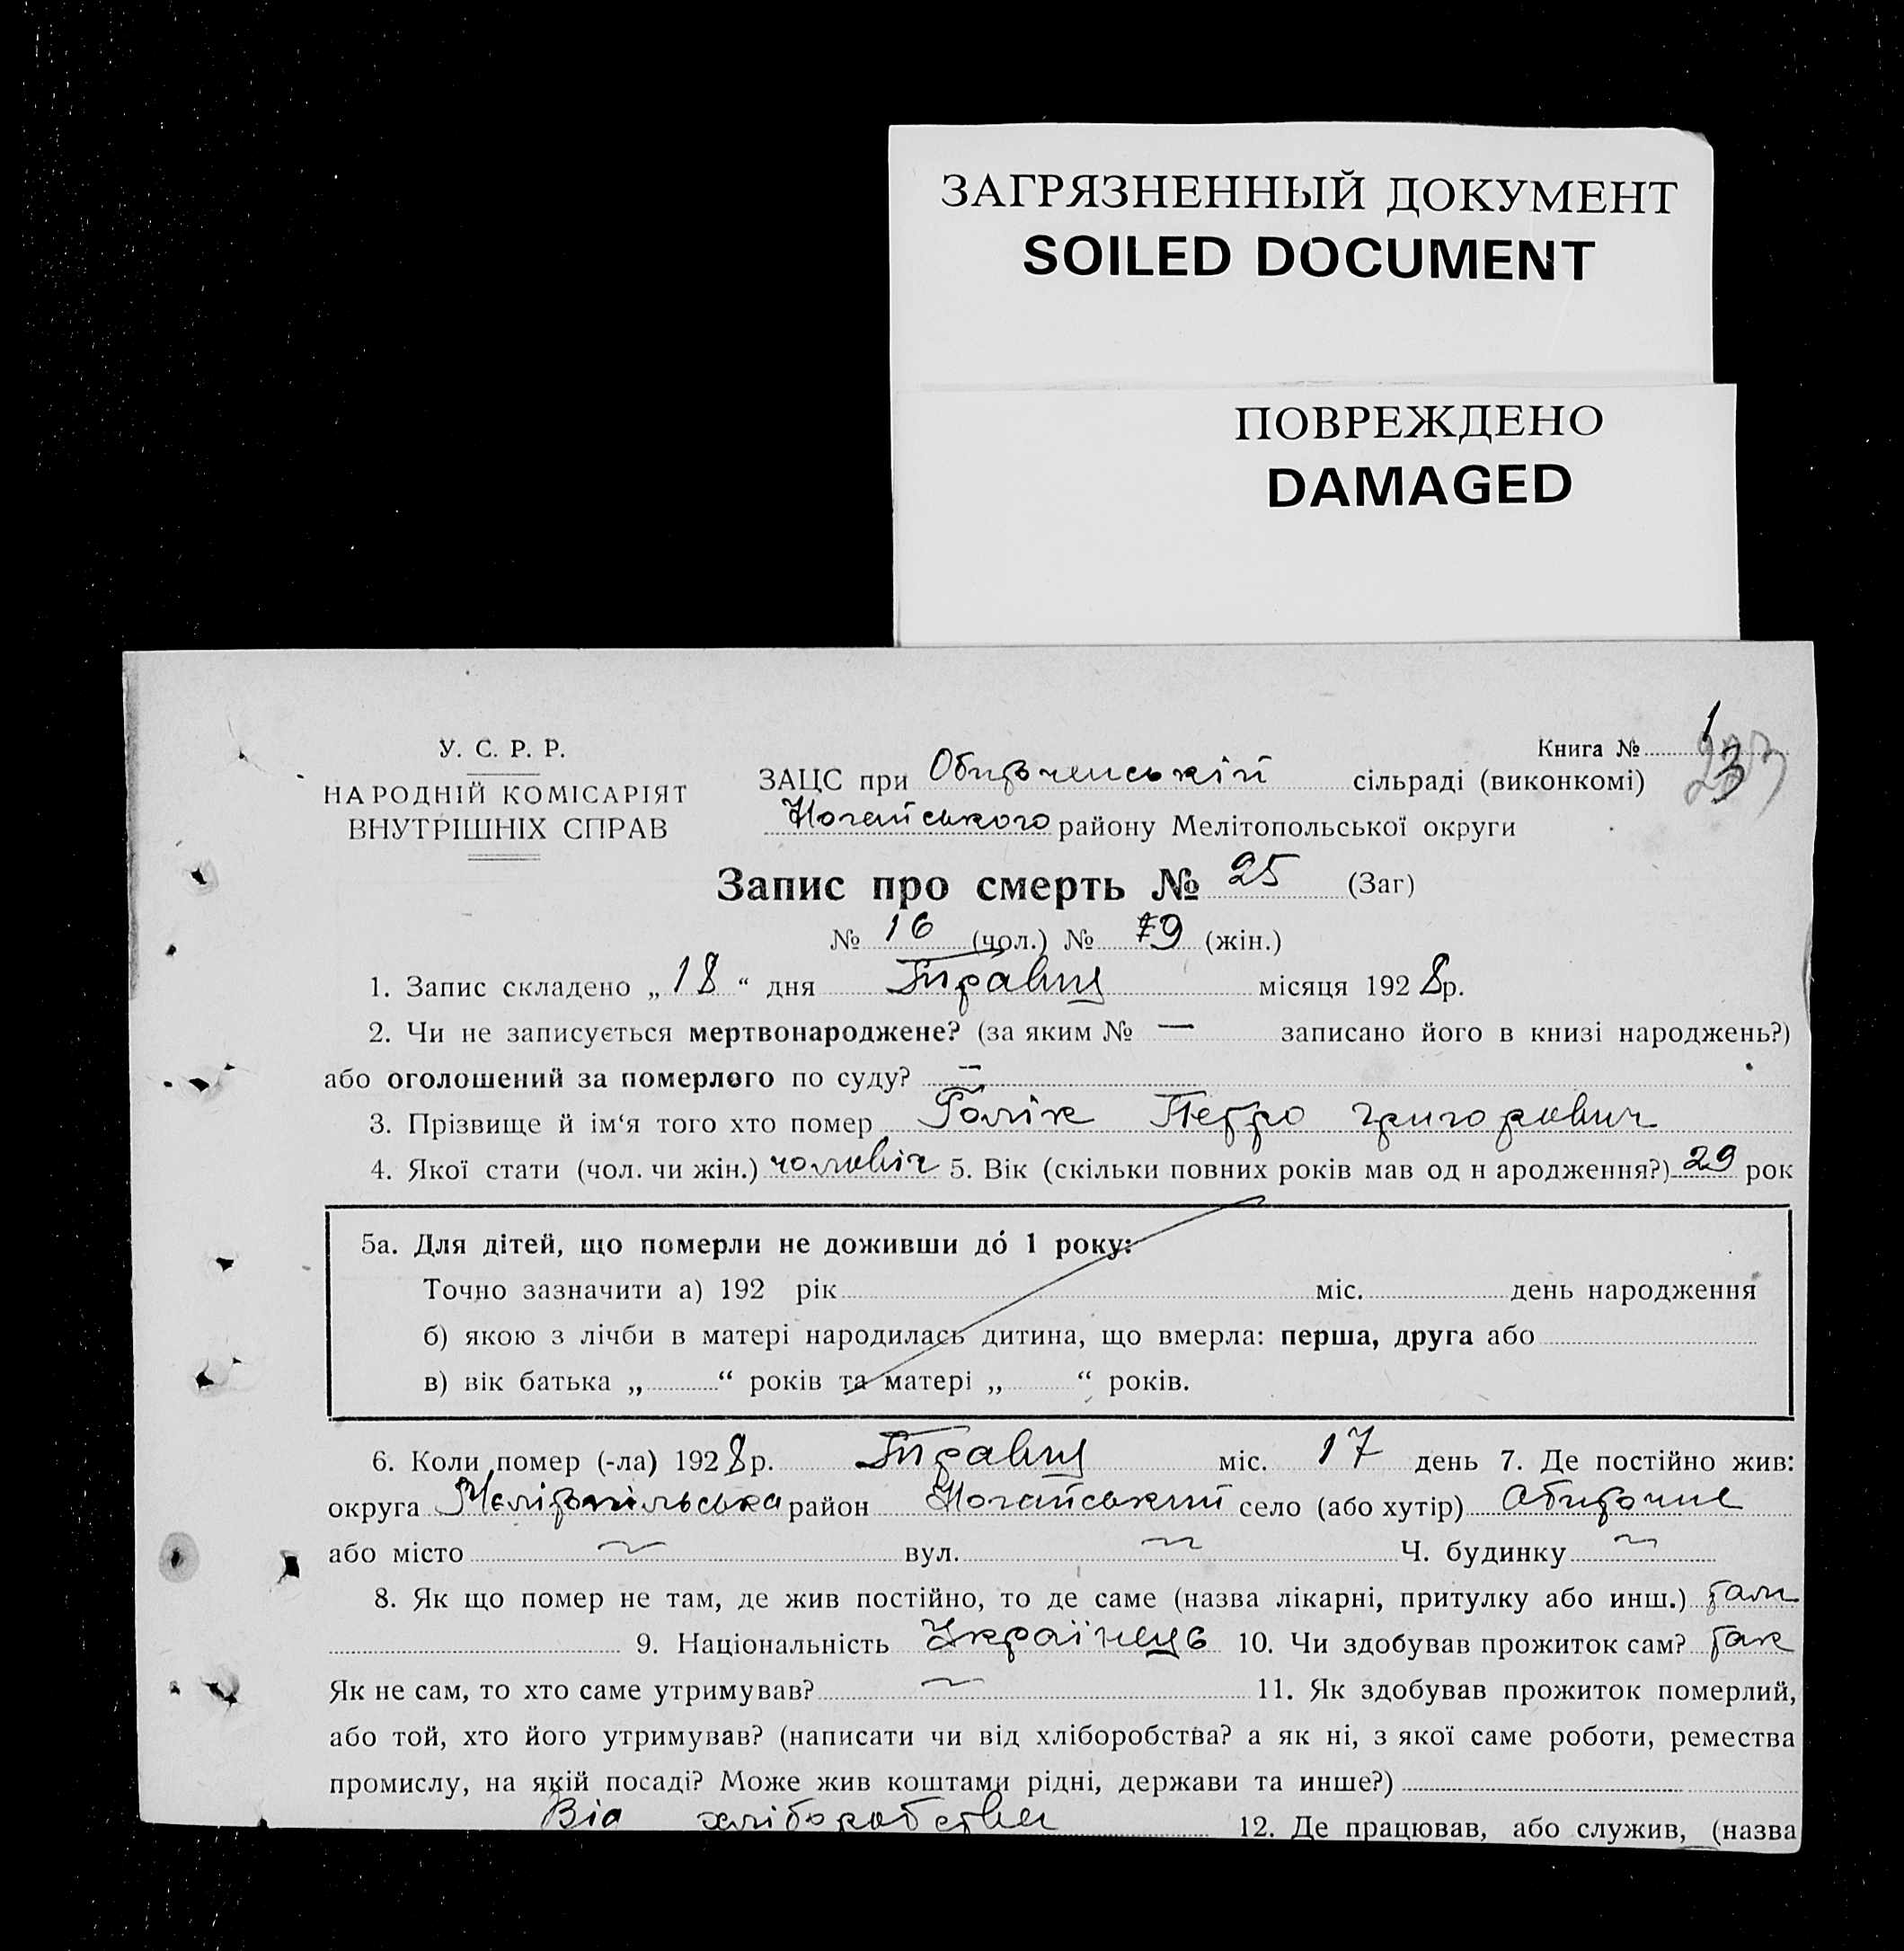 ЗАГРЯЗНЕННЫЙ ДОКУМЕНТ
SOILED DOCUMENT
ПОВРЕЖДЕНО
DAMAGED
У. С. Р. Р.
НАРОДНІЙ КОМІСАРІЯТ
ВНУТРІШНІХ СПРАВ
Книга № 1
3
ЗАЦС при Обиточенській сільраді (виконкомі)
Ногайського району Мелітопольської округи
Запис про смерть № 25 (Заг)
№ 16 (чол.) № 9 (жін.)
1. Запис складено „18“ дня Травня місяця 1928р.
2. Чи не записується мертвонароджене? (за яким № — записано його в книзі народжень?)
або оголошений за померлого по суду? —
3. Прізвище й ім‘я того хто помер Голік Петро григорович
4. Якої стати (чол. чи жін.) чоловіч 5. Вік (скільки повних років мав од н ародження?) 29 рок
5а. Для дітей, що померли не доживши до 1 року:
Точно зазначити а) 192 рік міс. день народження
б) якою з лічби в матері народилась дитина, що вмерла: перша, друга або
в) вік батька „ “ років та матері „ “ років.
6. Коли помер (-ла) 1928р. Травня міс. 17 день 7. Де постійно жив:
округа Мелітопільська район Ногайський село (або хутір) Обиточне
або місто ~ вул. ~ Ч. будинку ~
8. Як що помер не там, де жив постійно, то де саме (назва лікарні, притулку або инш.) там
9. Національність Українець 10. Чи здобував прожиток сам? так
Як не сам, то хто саме утримував? ~ 11. Як здобував прожиток померлий,
або той, хто його утримував? (написати чи від хліборобства? а як ні, з якої саме роботи, ремества
промислу, на якій посаді? Може жив коштами рідні, держави та инше?)
Від хліборобства 12. Де працював, або служив, (назва